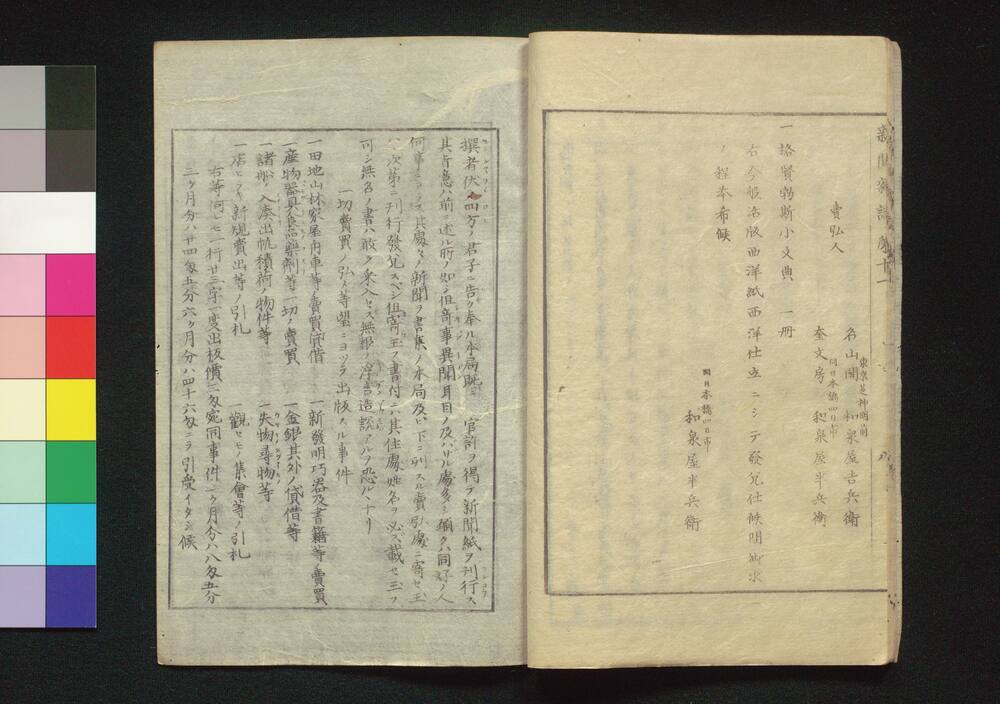 新聞雑誌 第十一
賣弘人
東京芝神明前
名山閣 和泉屋吉兵衛
同日本橋四日市
奎文房 和泉屋半兵衛
一 挌賢勃斯小文典 一冊
右今般活版西洋紙西洋仕立ニシテ發兌仕候間御求
ノ程奉希候
同日本橋四日市
和泉屋半兵衛
撰者伏テ四方ノ君子ニ告ケ奉ル本局既ニ 官許ヲ得テ新聞紙ヲ刊行ス
其旨意ハ前ニ述ル所ノ如シ但奇事異聞耳目ノ及ハサル處多シ願クハ同好ノ人
何事ニヨラス其處々ノ新聞ヲ書集メ本局及ヒ下ニ列スル賣弘處ニ寄セ玉
次第ニ刊行發兌スベシ但寄玉フ書付ニハ其住處姓名ヲ必ズ載セ玉フ
可シ無名ノ書ハ敢テ采入セス無根ノ浮言造説アルヲ恐ルヽナリ
一切賣買ノ弘メ等望ニヨツテ出版スル事件
一田地山林家屋舟車等ノ賣買貸借 一新發明巧器及書籍等ノ賣買
一産物器具食品藥劑等一切ノ賣買 一金銀其外ノ貸借等
一諸船ノ入湊出帆積荷ノ物件等 一失物尋物等
一店ヒラキ新規賣出等ノ引札 一觀セモノ集會等ノ引札
右等何レモ一行廿三字一度出板價三匁宛同事件一ヶ月分ハ八匁五分
三ヶ月分ハ廿四匁五分六ヶ月分ハ四十六匁ニテ引受イタシ候